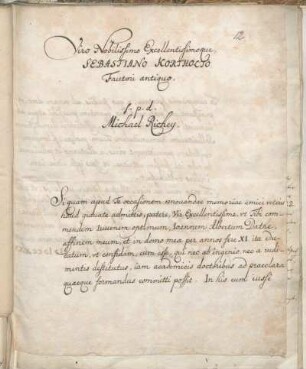 12.
Viro Nobilissimo Excellentissimoque,
SEBASTIANO KORTHOLTO
Fautori antiquo.
s. p. d.
Michael Richey.
Si quam apud Te occasionem renovandae memoriae amici veteris
haud gravate admittis, patere, Vir Excellentissime, ut Tibi com-
mendem juvenem optimum, Joannem Albertum
affinem meum, et in domo mea per annos fere XI. ita edu-
catum, ut confidam, eum esse, qui nec ab ingenio, nec a
mentis destitutus, jam academicis doctoribus ad praeclara
quaeque formandus committi possit. In his eum